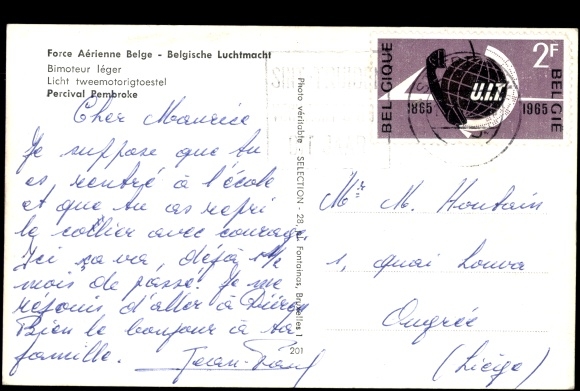 Force Aérienne Belge - Belgische Luchtmacht
Bimoteur léger
Licht tweemotorigtoestel
Percival Pembroke
Cher Maurice
Je suppose que tu
es rentré à l'école
et que tu as repri
le collier avec courage
Ici ça va, déjà
mois de passé. Je me
réjouis d'aller à
Bien le bonjour à ta
famille. Jean-
Photo véritable - SELECTION - 28, Fontainas, Bruxelles 1
201
BELGIQUE
2F
U.I.T.
1865
1965
BELGIE
Mr M. Houtain
1, quai Louva
Ougrée
(Liège)